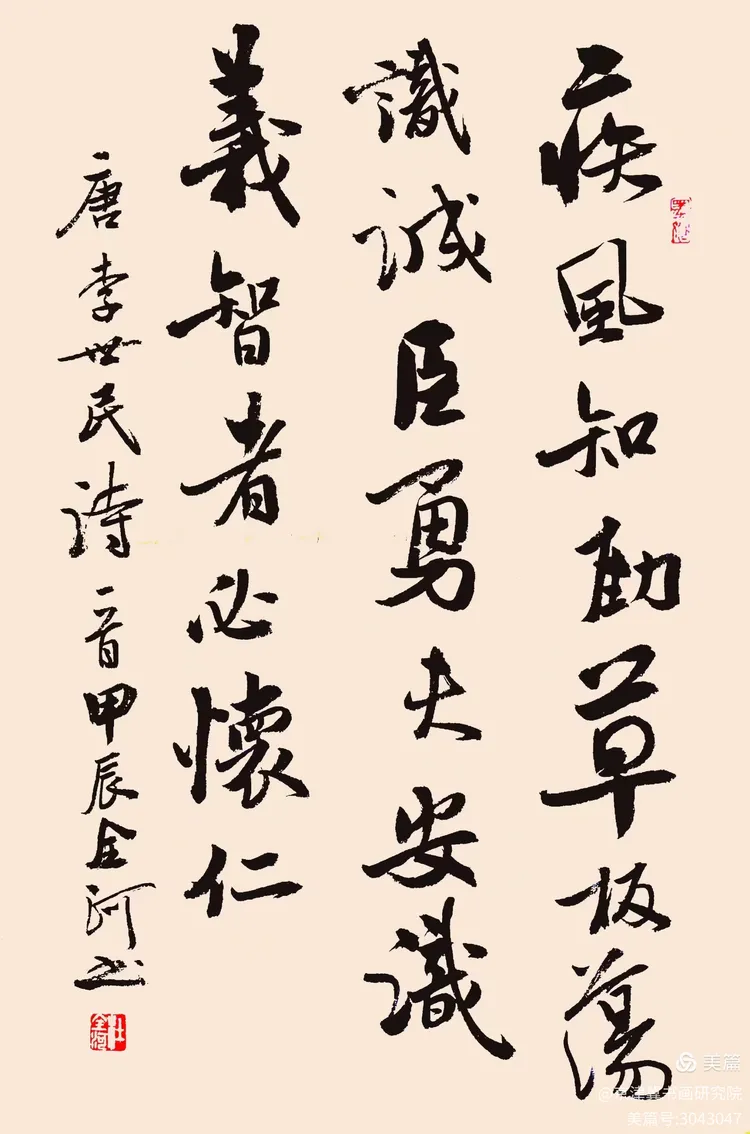 疾风知劲草板蕩
識誠臣勇夫安識
義智者必懷仁
唐李世民诗一首甲辰全河书
美篇
津
书画研究院
美篇号:3043047